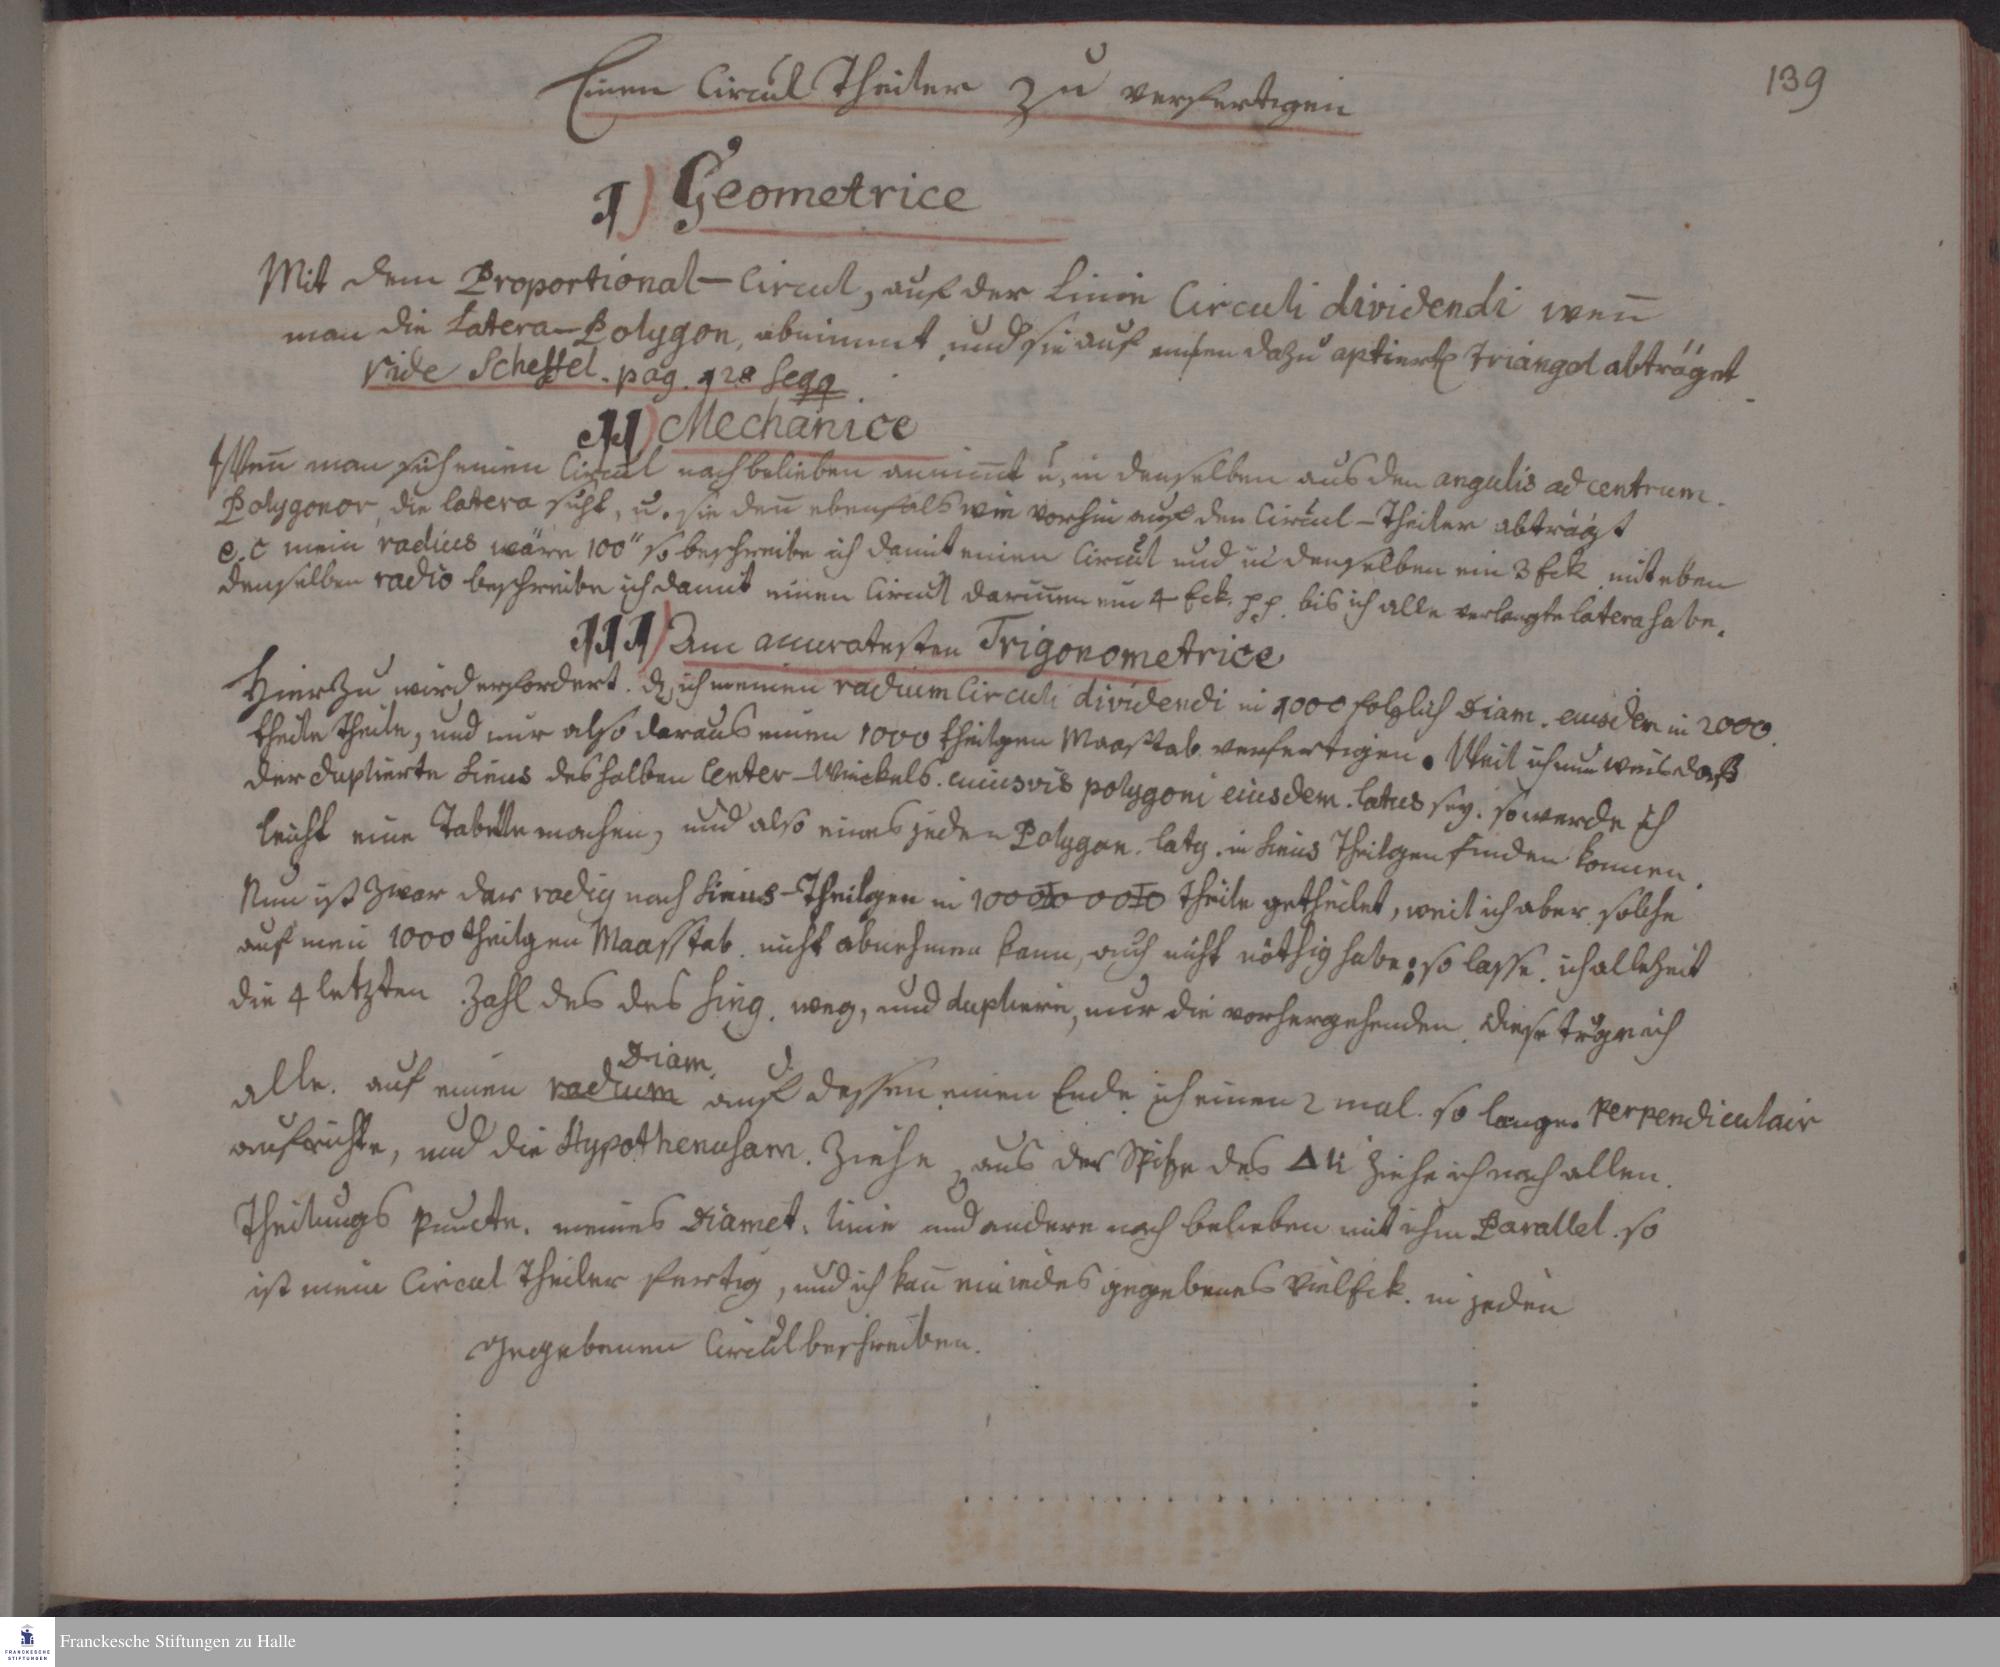 139
Einen Circul Theiler zu verfertigen
I) Geometrice
Mit dem Proportional-Circul, auf der Linie Circuli dividendi weñ
man die Latera-Polygon, abnimmt, und sie auf einen dazu aptiert Triangel abträget
vide Scheffel. pag. 128 seqq
II) Mechanice
Weñ man sich einen Circul nach belieben annim̄t u, in denselben aus den angulis ad centrum.
Polygonor, die latera sucht, u. sie deñ ebenfals wie vorhin auf den Circul-Theiler abträgt
e.c mein radius wäre 100" so beschreibe ich damit einen Circul und in denselben ein 3 Eck, mit eben
denselben radio beschreibe ich damit einen Circul darinnen ein 4 Eck. pp. bis ich alle verlangte latera habe.
III) Am accuratesten Trigonometrice
Hierzu wird erfordert. dz ich meinen radium Circuli dividendi in 1000 folglich Diam. eiusdem in 2000.
theile theile, und mir also daraus einen 1000 theilgen Maasstab verfertigen. Weil ich nun weis daß
der duplierte Sinus des halben Center-Winckels. cuiusvis polygoni eiusdem. latus sey. so werde ich
leicht eine Tabelle machen, und also eines jeden Polygon. latq. in Sinus Theilgen finden konnen.
Nun ist zwar der radiq nach Sinus-Theilgen in theile getheilet, weil ich aber solche
auf mein 1000 theilgen Maasstab. nicht abnehmen kann, auch nicht nöthig habe: so lasse. ich allezeit
die 4 letzten Zahl des des sinq. weg, und duplire, nur die vorhergehenden. Diese trage ich
Diam.
alle. auf einen radium auf dessen einen Ende ich einen 2 mal. so lange. Perpendiculair
aufrichte, und die Hypothenusam. Ziehe, aus der Spitze des Δli ziehe ich nach allen.
Theilungs Puncte. meines Diamet. linie und andere nach belieben mit ihm Parallel. so
ist mein Circul Theiler fertig, und ich kañ ein iedes gegebenes VielEck. in jeden
gegebenen Circul beschreiben.
Franckesche Stiftungen zu Halle
FRANCKESCHE
STIFTUNGEN